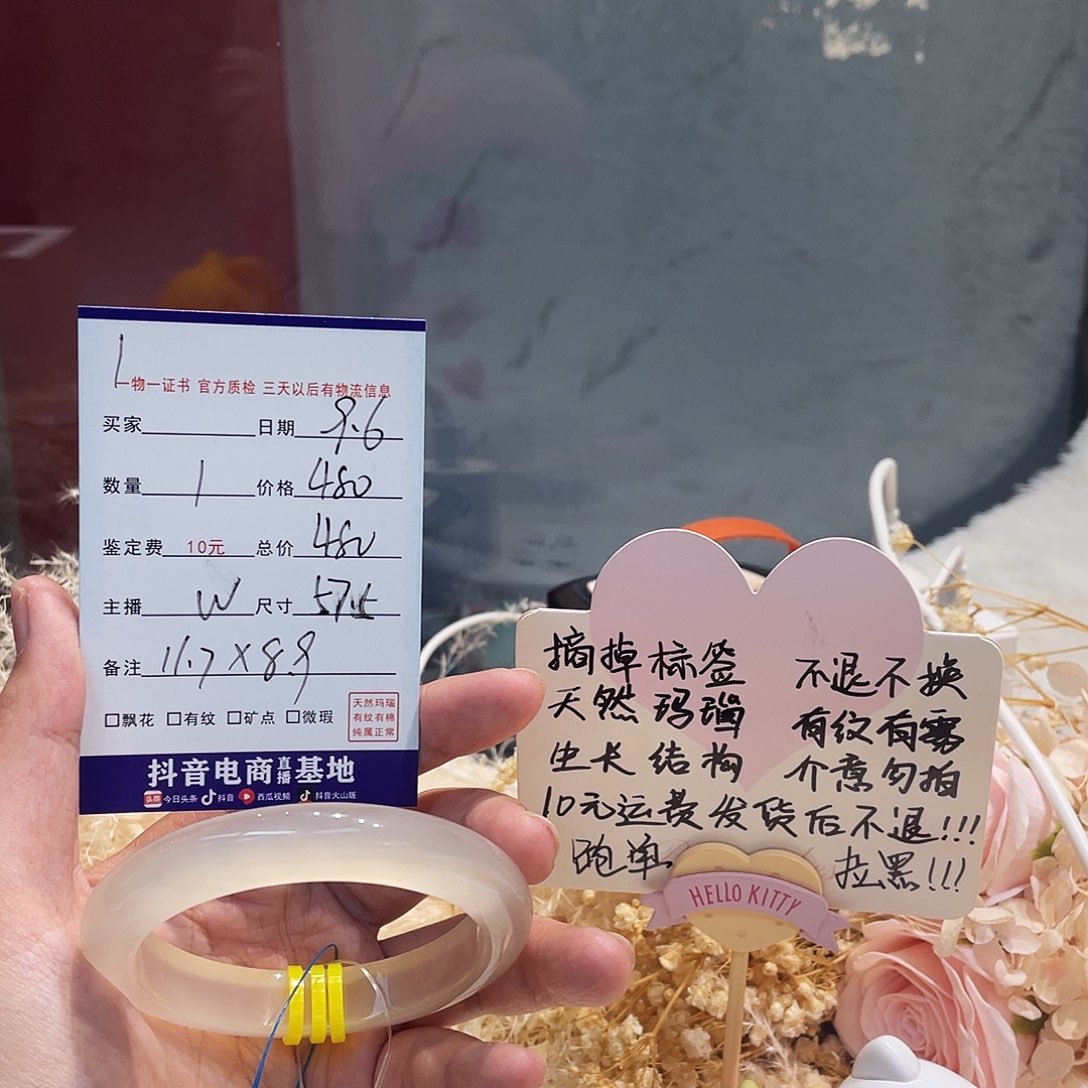 一物一证书 官方质检 三天以后有物流信息
买家 日期 9.6
数量 1 价格 480
鉴定费 10元 总价 480
主播 W 尺寸 57.5
备注 11.7×8.9
□飘花 □有纹 □矿点 □微瑕
天然玛瑙
有纹有棉
纯属正常
抖音电商直播基地
头条 今日头条 抖音 西瓜视频 抖音火山版
摘掉标签 不退不换
天然玛瑙 有纹有雾
生长结构 介意勿拍
10元运费发货后不退!!!
跑单 拉黑!!!
HELLO KITTY